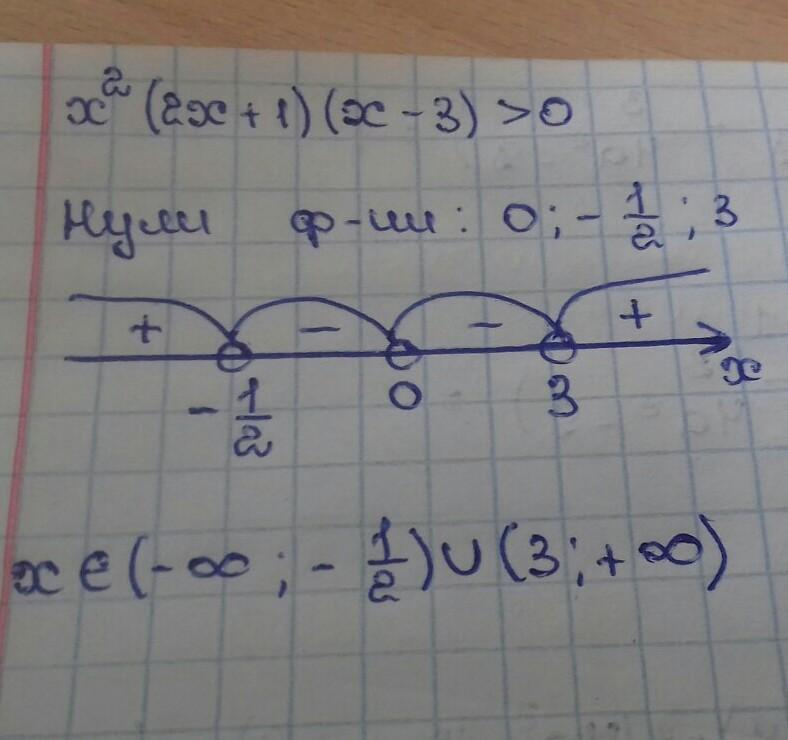 x²(2x+1)(x-3)>0
Нули ф-ии: 0; -1/2; 3
+ − − +
-1/2 0 3 x
x∈(-∞; -1/2)∪(3; +∞)